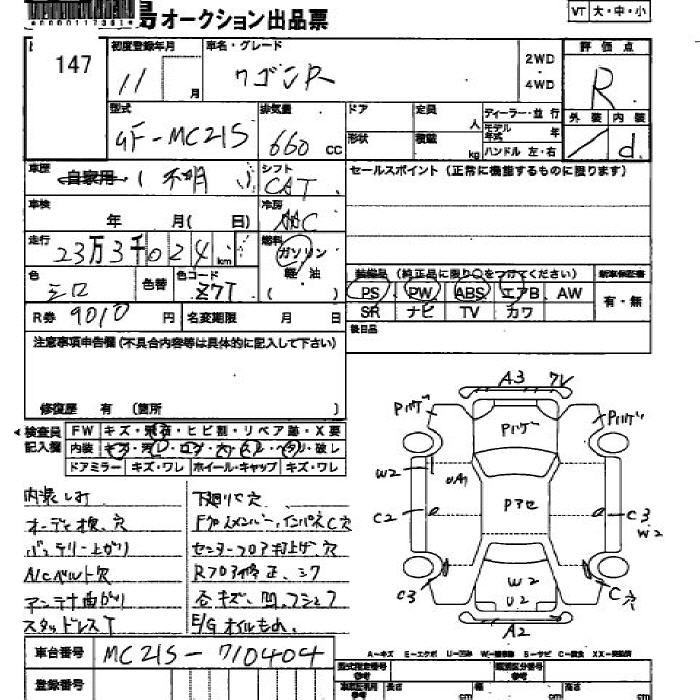 島オークション出品票
VT 大・中・小
147
初度登録年月 車名・グレード 評価点
11 月 ワゴンR 2WD ・ 4WD R
型式 排気量 ドア 定員 人 ディーラー・並行 外装 内装
GF-MC21S 660 cc 形状 積載 kg モデル年式 年 ハンドル 左・右 / d
車歴 自家用 ( 不明 ) シフト CAT セールスポイント (正常に機能するものに限ります)
車検 年 月( 日) 冷房 AAC
走行 23万3千024 km 燃料 ガソリン 軽・油 ( )
色 シロ 色替 色コード Z7T
装備品 (純正品に限り○をつけてください) 新車保証書
PS PW ABS エアB AW 有・無
SR ナビ TV カワ
R券 9010 円 名変期限 月 日 後日品
注意事項申告欄 (不具合内容等は具体的に記入して下さい)
修復歴 有 (箇所
検査員記入欄 FW キズ・飛石・ヒビ割・リペア跡・X要
内装
ドアミラー キズ・ワレ ホイール・キャップ キズ・ワレ
内装しみ 下廻りサビ穴
バッテリー上がり
A/Cベルト欠 Rフロア修正、シワ
アンテナ曲がり
スタッドレスT E/G オイルもれ
A3 ワレ
Pハゲ Pハゲ Pハゲ
W2 UA1 Pアセ
C2 C3 W2
C3 W2 U2 C穴
A2
A-キズ E-エクボ U-凹み W-補修跡 S-サビ C-腐食 XX-交換済
車台番号 MC21S-710404
型式指定番号 類別区分番号
登録番号 参考 長さ cm 幅 cm 高さ cm